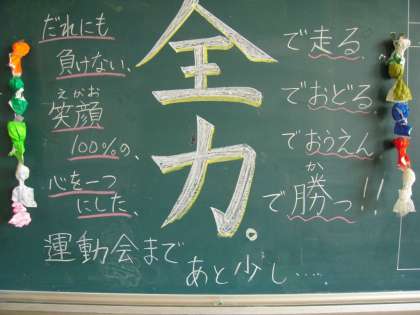 だれにも
負けない、
えがお
笑顔
100%の、
心を一つ
にした、
全力。
で走る
でおどる
でおうえん
か
で勝っ!!
運動会まで
あと少し……